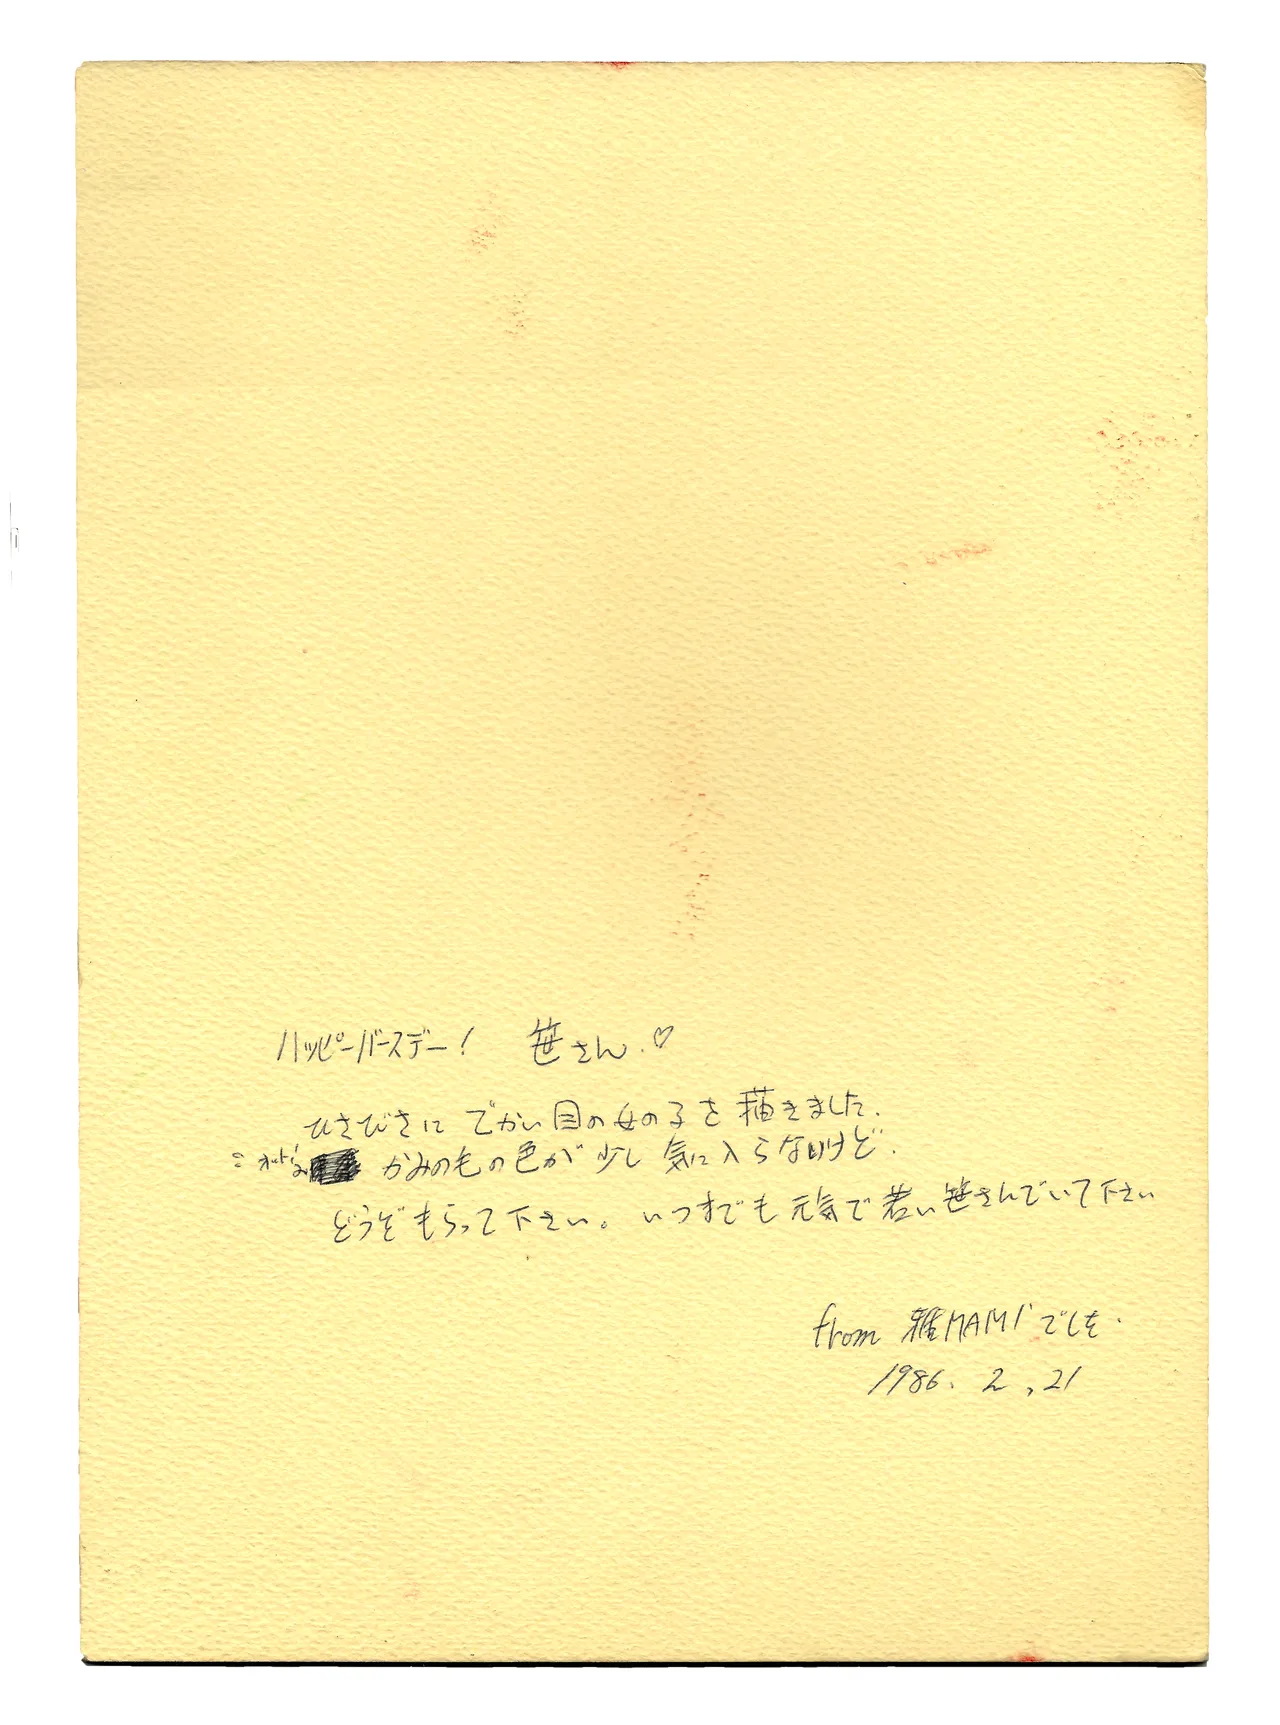 ハッピーバースデー! 笹さん.♡
ひさびさに でかい目の女の子を 描きました.
かみのもの色が 少し 気に入らないけど.
どうぞもらって下さい。いつまでも元気で若い笹さんでいて下さい
from 雅MAMIでした.
1986. 2. 21